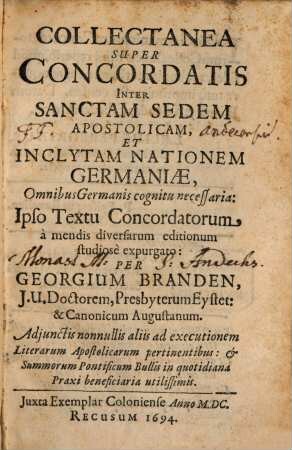 COLLECTANEA
SUPER
CONCORDATIS
INTER
SANCTAM SEDEM
APOSTOLICAM,
ET
INCLYTAM NATIONEM
GERMANIÆ,
Omnibus Germanis cognitu necessaria:
Ipso Textu Concordatorum,
à mendis diversarum editionum
studiosè expurgato:
Monast. M. S. Andechs.
PER
GEORGIUM BRANDEN,
J.U. Doctorem, Presbyterum Eystet:
& Canonicum Augustanum.
Adjunctis nonnullis aliis ad executionem
Literarum Apostolicarum pertinentibus: &
Summorum Pontificum Bullis in quotidianâ
Praxi beneficiaria utilissimis.
Juxta Exemplar Coloniense Anno M.DC.
RECUSUM 1694.